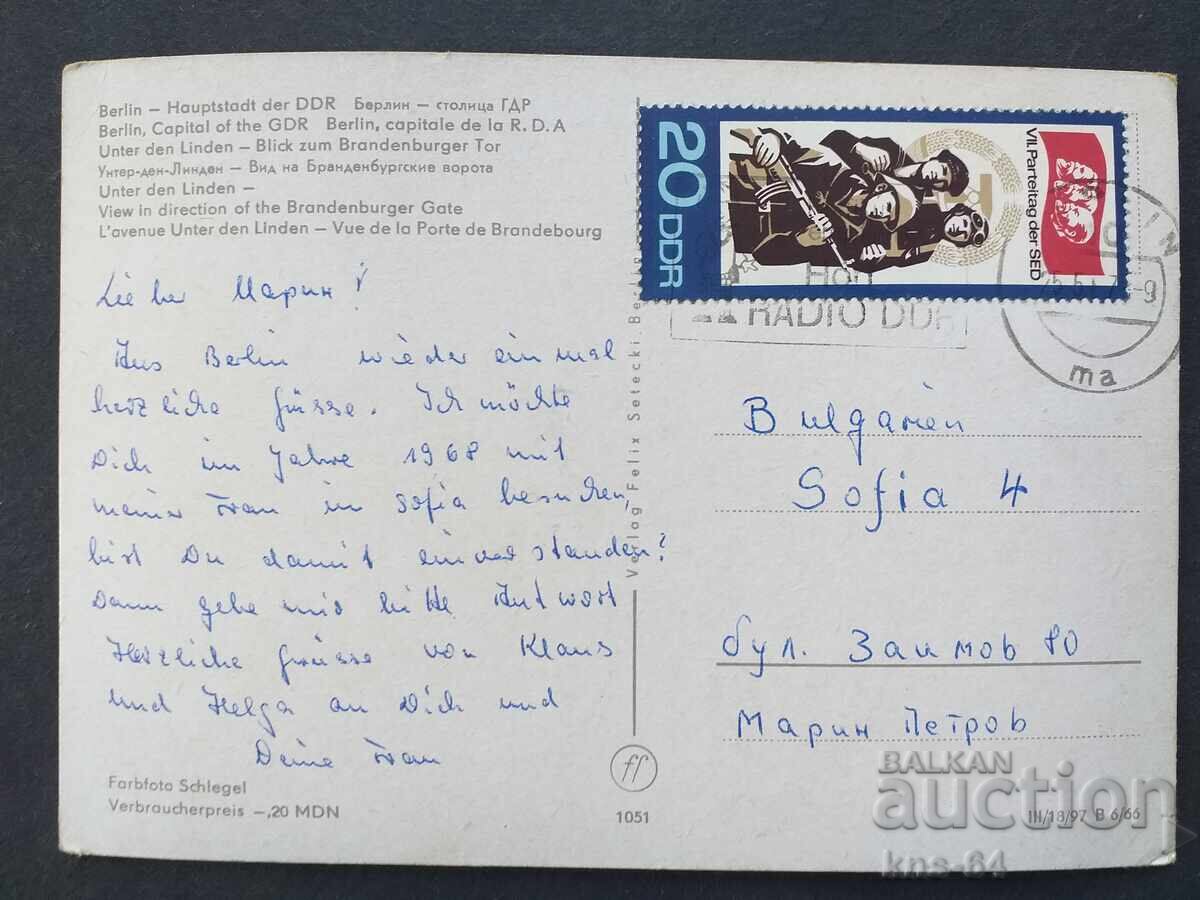 Berlin – Hauptstadt der DDR Берлин – столица ГДР
Berlin, Capital of the GDR Berlin, capitale de la R.D.A
Unter den Linden – Blick zum Brandenburger Tor
Унтер-ден-Линден – Вид на Бранденбургские ворота
Unter den Linden –
View in direction of the Brandenburger Gate
L'avenue Unter den Linden – Vue de la Porte de Brandebourg
Lieber Марин!
Aus Berlin wieder einmal
herzliche Grüsse. Ich möchte
Dich im Jahre 1968 mit
meiner Frau in Sofia besuchen,
bist Du damit einverstanden?
Dann gebe mir bitte Antwort
Herzliche Grüsse von Klaus
und Helga an Dich und
Deine Frau
Farbfoto Schlegel
Verbraucherpreis –,20 MDN
Verlag Felix Setecki
1051
ff
III/18/97 B 6/66
20 DDR
VII. Parteitag der SED
RADIO DDR
ma
Bulgarien
Sofia 4
бул. Заимов 80
Марин Петров
BALKAN
auction
kns-64